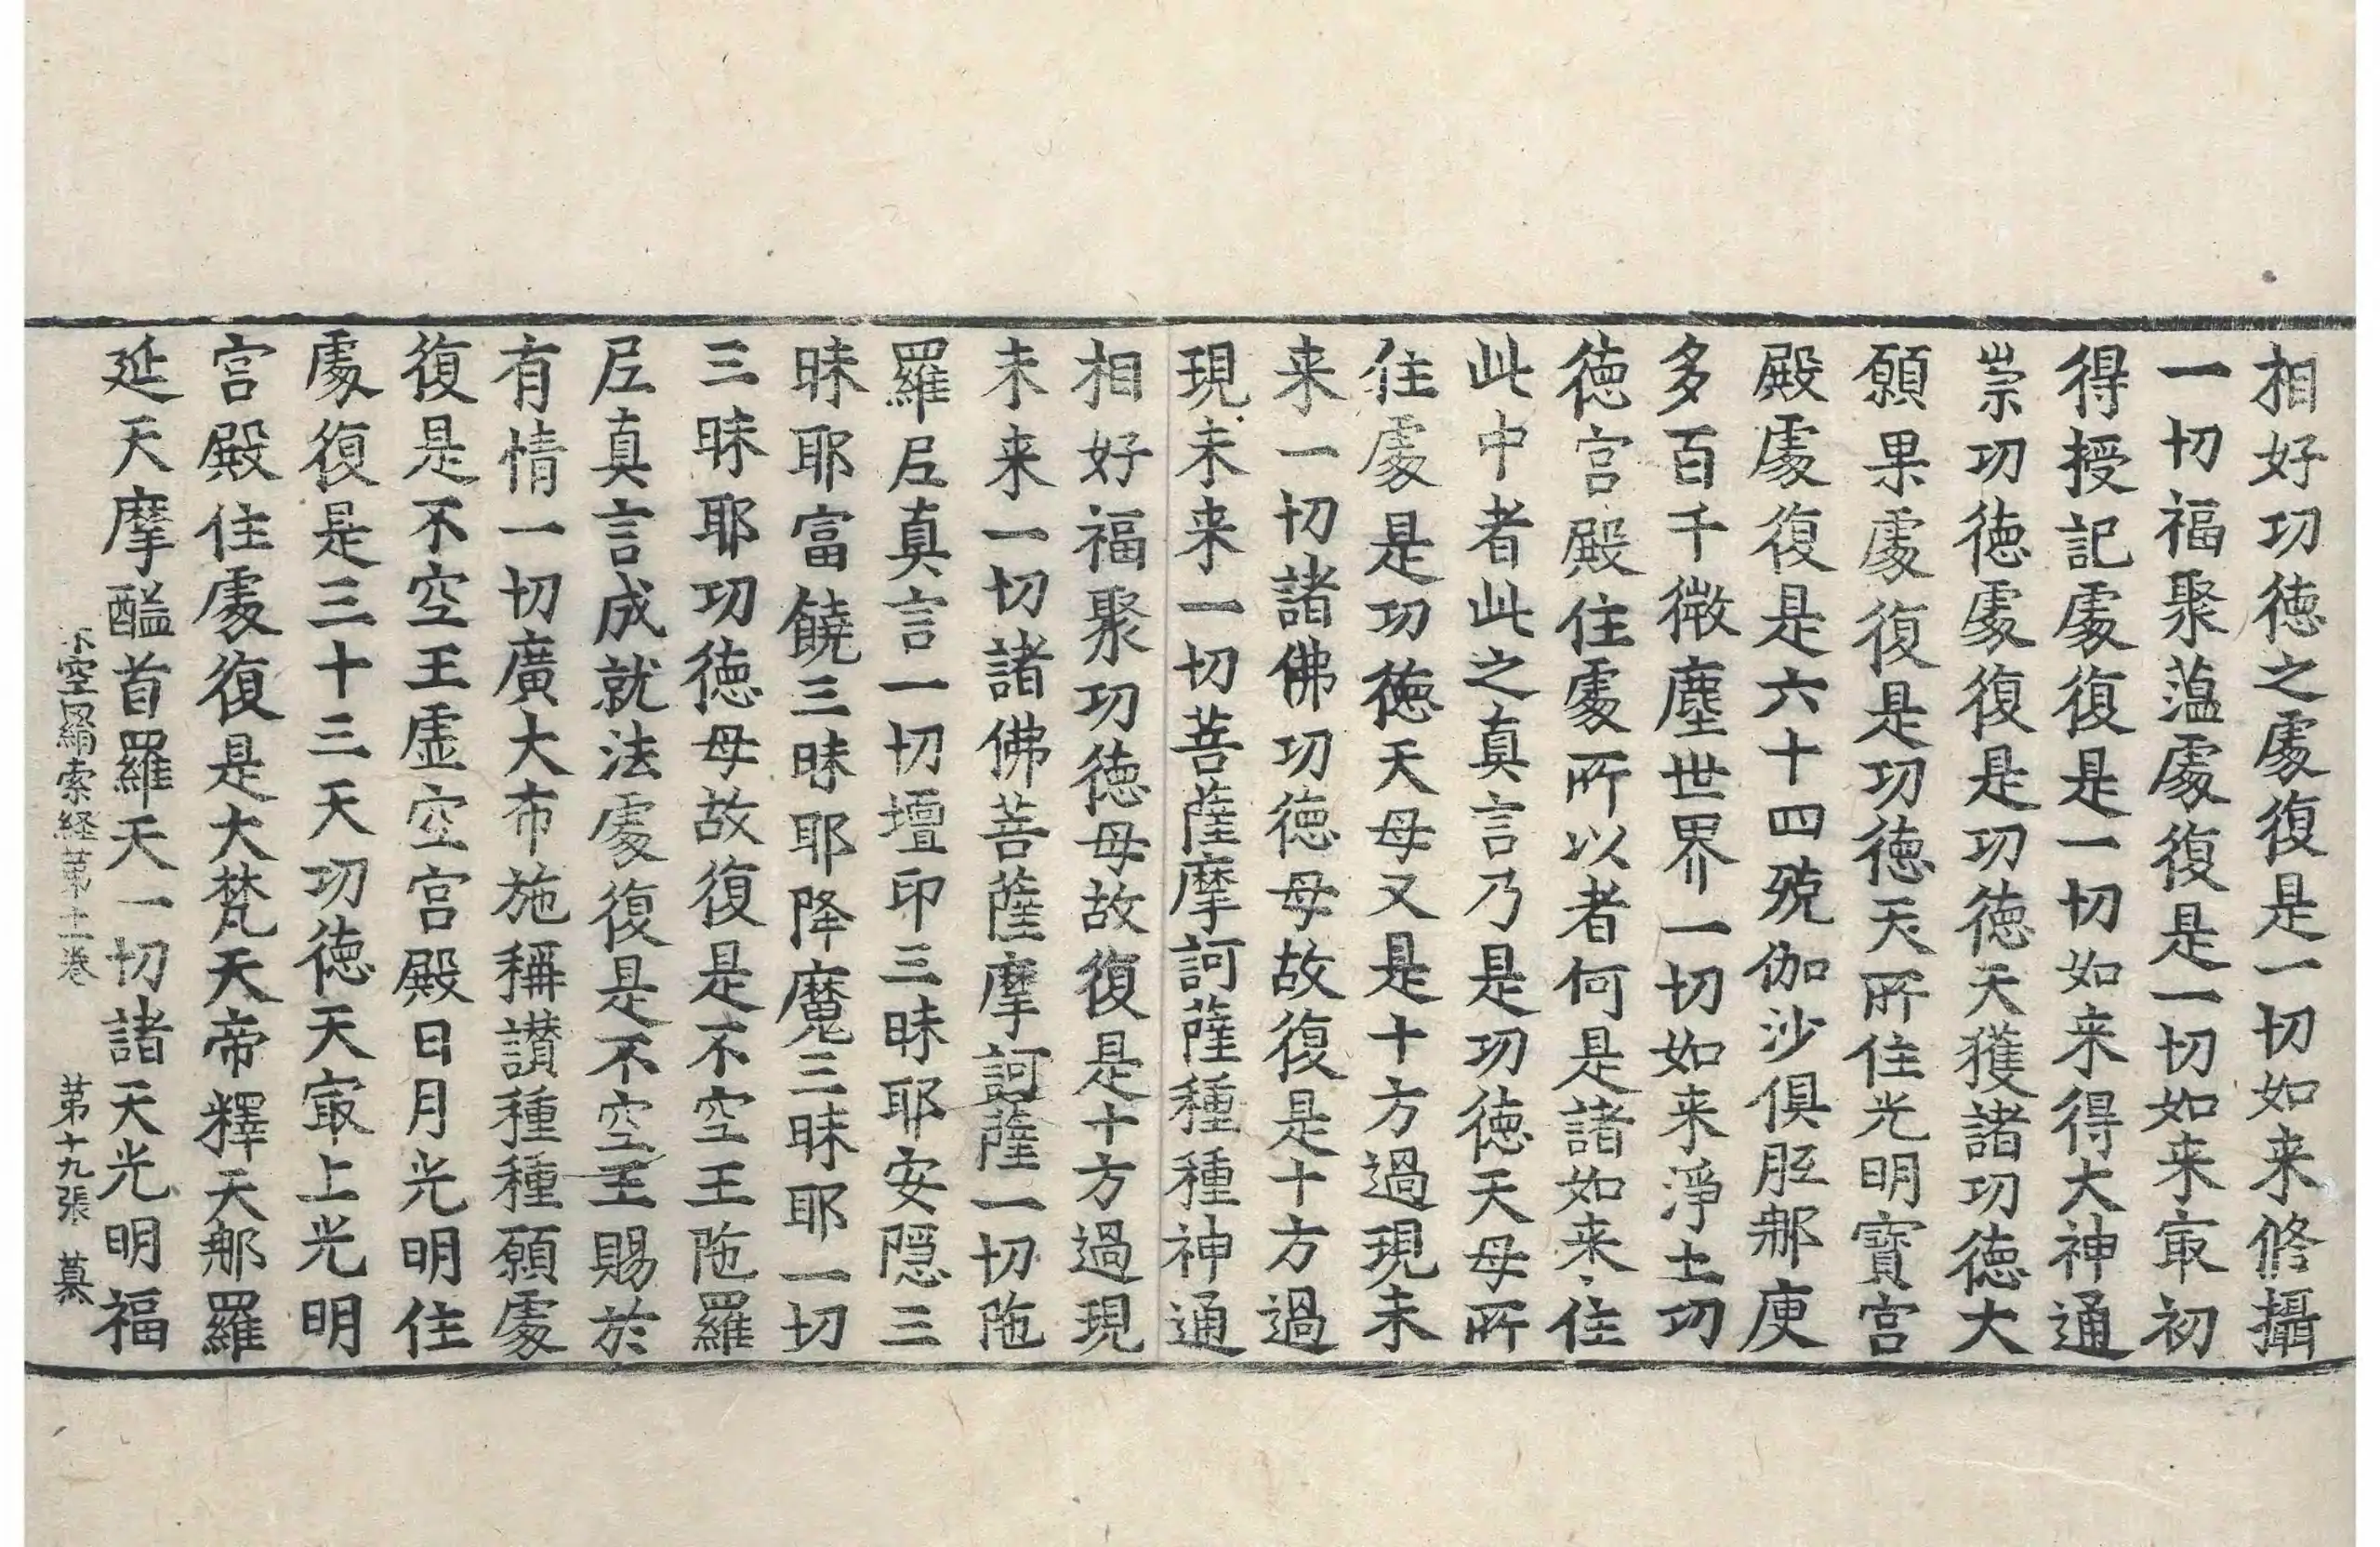 相好功徳之處復是一切如来修攝
一切福聚薀處復是一切如来㝡初
得授記處復是一切如来得大神通
崇功徳處復是功徳天獲諸功徳大
願果處復是功徳天所住光明寶宫
殿處復是六十四殑伽沙俱胝那庾
多百千微塵世界一切如来淨土功
徳宫殿住處所以者何是諸如来住
此中者此之真言乃是功徳天母所
住處是功徳天母又是十方過現未
来一切諸佛功徳母故復是十方過
現未来一切菩薩摩訶薩種種神通
相好福聚功徳母故復是十方過現
未来一切諸佛菩薩摩訶薩一切陁
羅尼真言一切壇印三昧耶安隠三
昧耶富饒三昧耶降魔三昧耶一切
三昧耶功徳母故復是不空王陁羅
尼真言成就法處復是不空王賜於
有情一切廣大布施稱讃種種願處
復是不空王虚空宫殿日月光明住
處復是三十三天功徳天㝡上光明
宫殿住處復是大梵天帝釋天那羅
延天摩醯首羅天一切諸天光明福
不空羂索経苐十一巻 苐十九張 慕